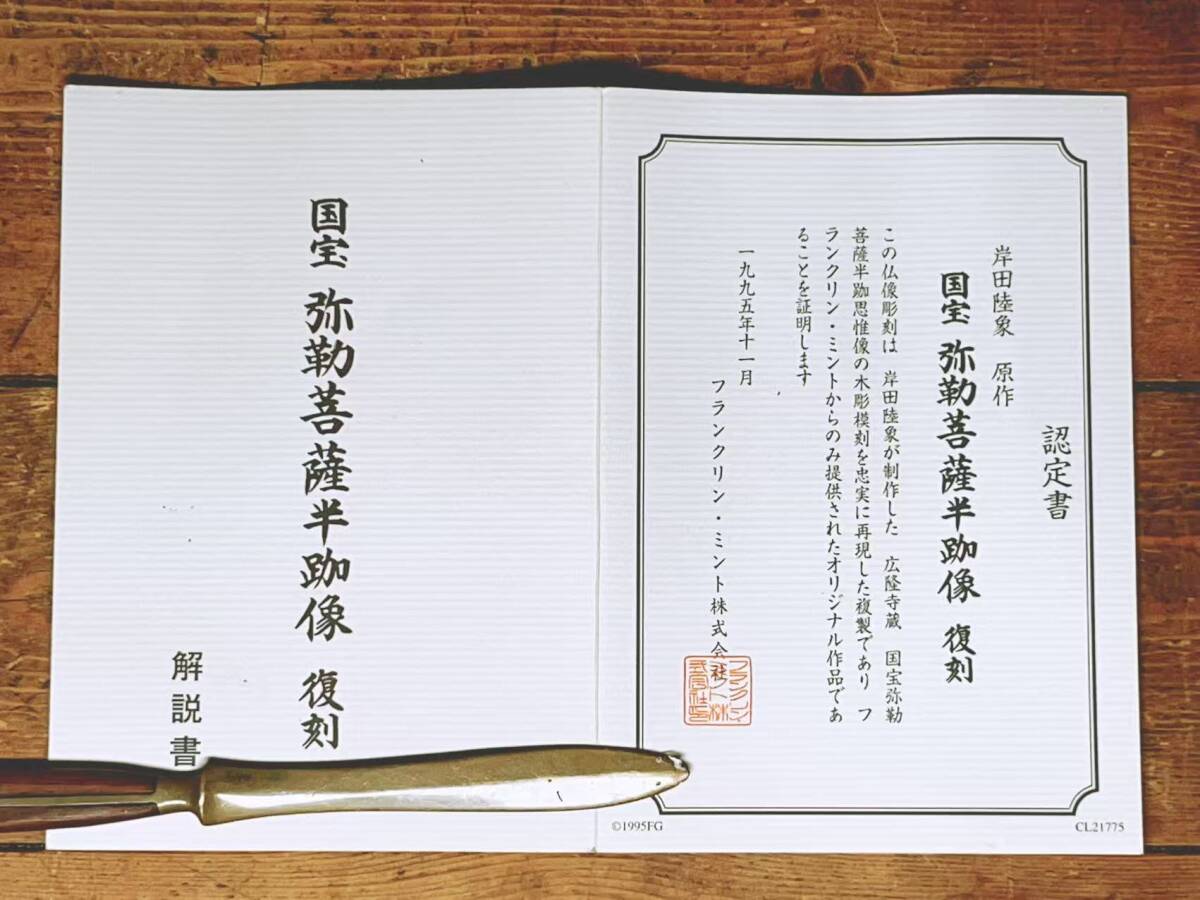 認定書
岸田陸象 原作
国宝 弥勒菩薩半跏像 復刻
この仏像彫刻は 岸田陸象が制作した 広隆寺蔵 国宝弥勒
菩薩半跏思惟像の木彫模刻を忠実に再現した複製であり フ
ランクリン・ミントからのみ提供されたオリジナル作品であ
ることを証明します
一九九五年十一月
フランクリン・ミント株式会社
©1995FG
CL21775
国宝 弥勒菩薩半跏像 復刻
解説書